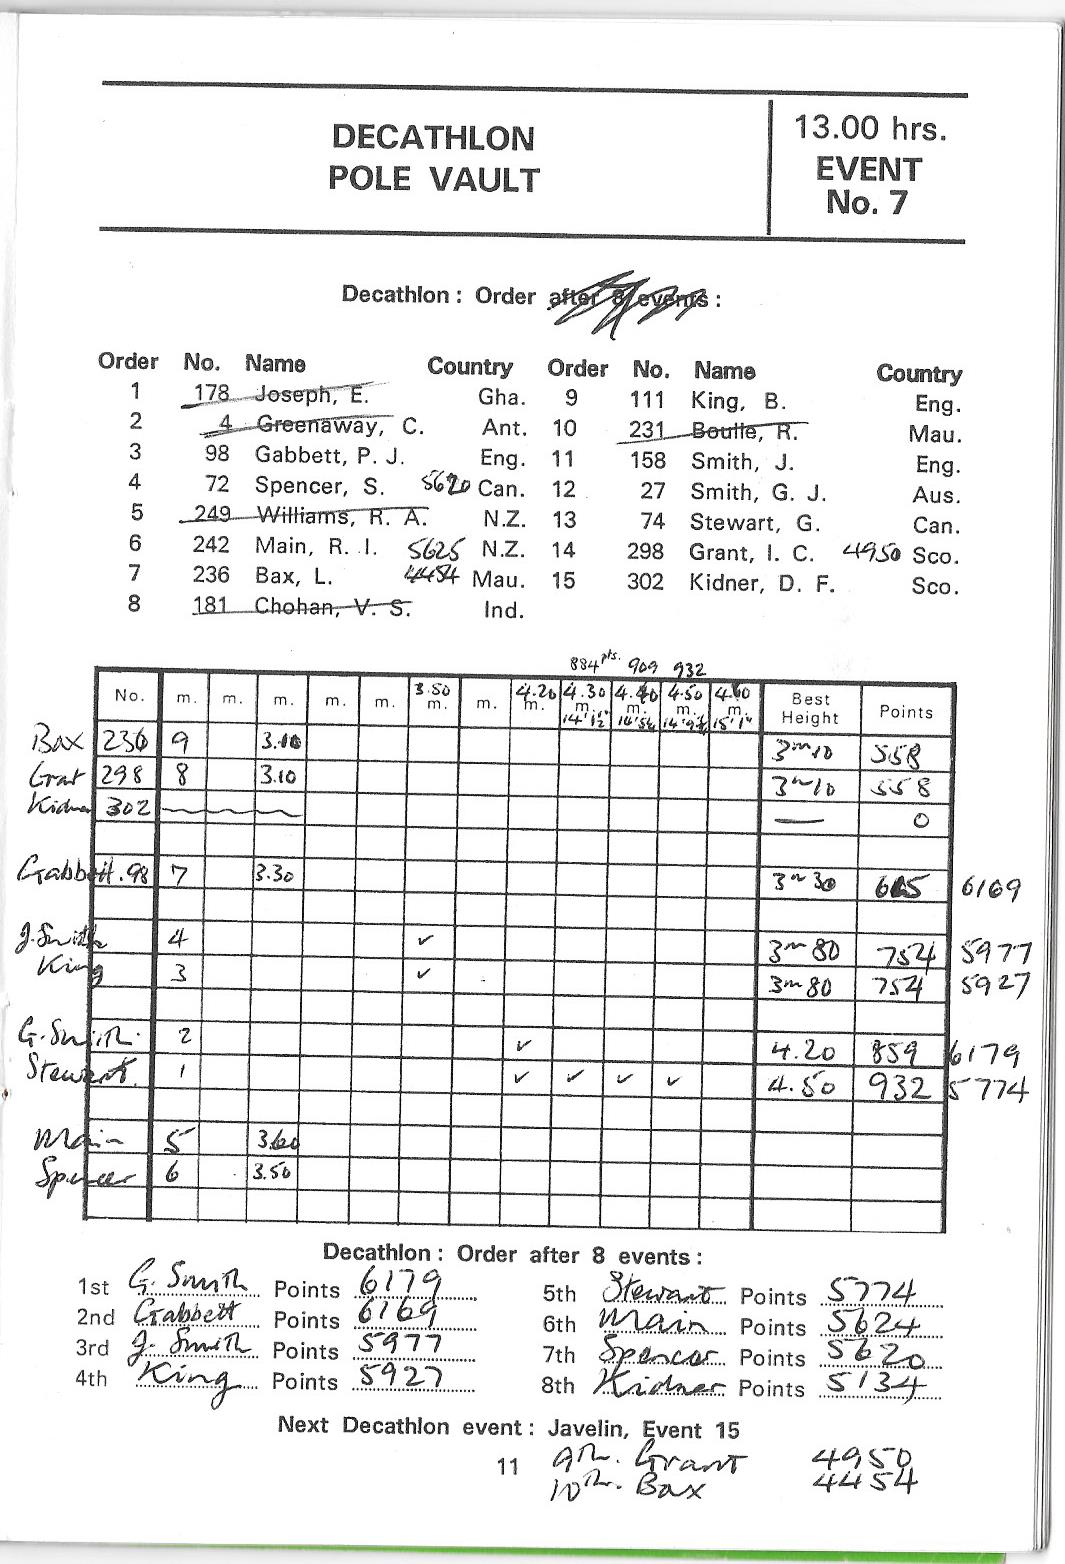 DECATHLON
POLE VAULT
13.00 hrs.
EVENT
No. 7
Decathlon : Order after 8 events :
Order No. Name Country Order No. Name Country
1 178 Joseph, E. Gha. 9 111 King, B. Eng.
2 4 Greenaway, C. Ant. 10 231 Boulle, R. Mau.
3 98 Gabbett, P. J. Eng. 11 158 Smith, J. Eng.
4 72 Spencer, S. 5620 Can. 12 27 Smith, G. J. Aus.
5 249 Williams, R. A. N.Z. 13 74 Stewart, G. Can.
6 242 Main, R. I. 5625 N.Z. 14 298 Grant, I. C. 4950 Sco.
7 236 Bax, L. 4454 Mau. 15 302 Kidner, D. F. Sco.
8 181 Chohan, V. S. Ind.
884 pts. 909 932
No. m. m. m. m. m. 3.50 m. m. 4.20 m. 4.30 m. 4.40 m. 4.50 m. 4.60 m. 15'1" Best Height Points
Bax 236 9 3.10 3m10 558
Grat 298 8 3.10 3m10 558
Kidner 302 — 0
Gabbett. 98 7 3.30 3m30 6169
J. Smith 4 ✓ 3m80 754 5977
King 3 ✓ 3m80 754 5927
G. Smith. 2 ✓ 4.20 859 6179
Stewart. 1 ✓ ✓ ✓ ✓ 4.50 932 5774
Main 5 3.60
Spencer 6 3.50
Decathlon : Order after 8 events :
1st G. Smith Points 6179 5th Stewart Points 5774
2nd Gabbett Points 6169 6th Main Points 5624
3rd J. Smith Points 5977 7th Spencer Points 5620
4th King Points 5927 8th Kidner Points 5134
Next Decathlon event : Javelin, Event 15
11 9th. Grant 4950
10th. Bax 4454